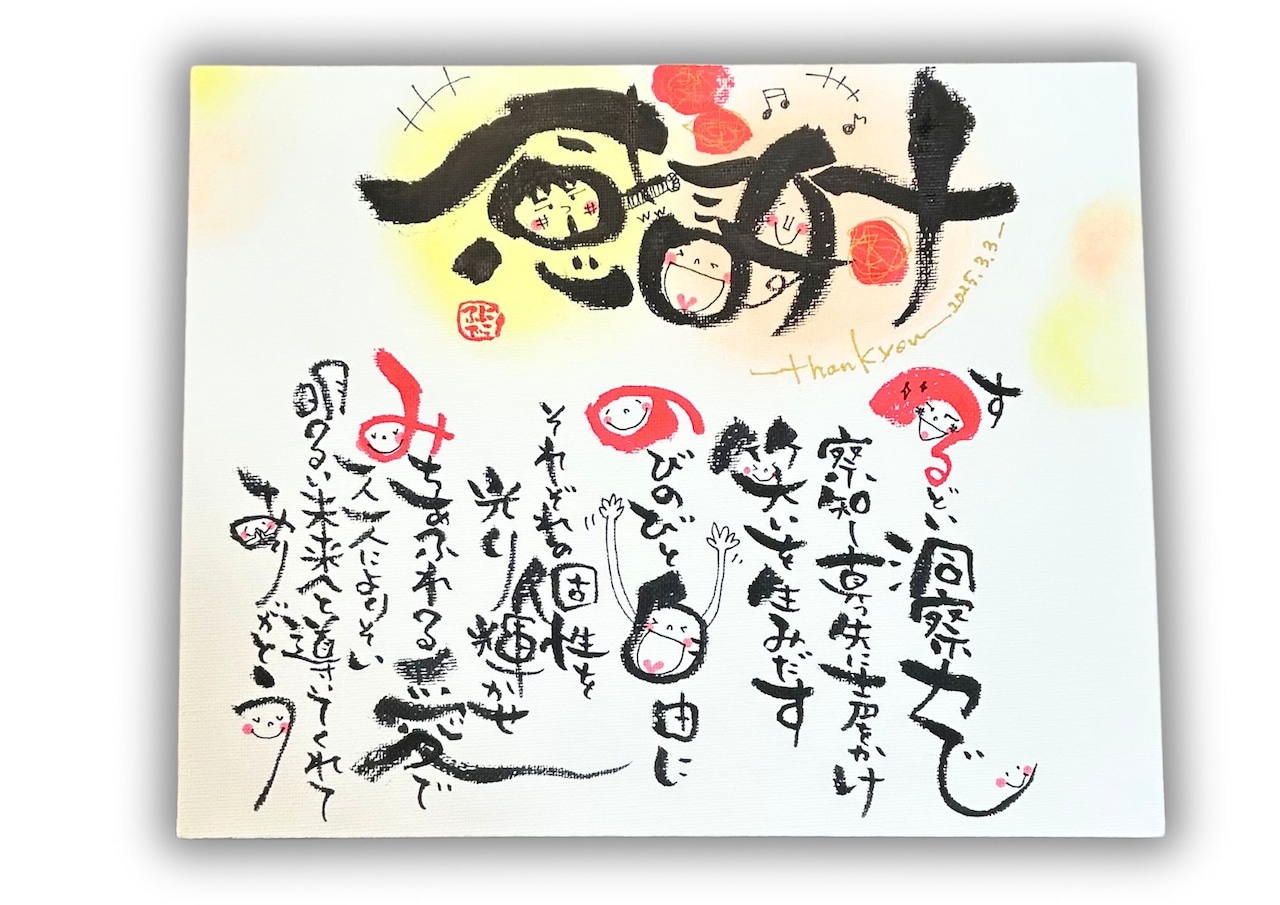 感謝
thank you 2025.3.3
にこふで
するどい洞察力で
察知し真っ先に声をかけ
笑いを生みだす
のびのびと自由に
それぞれの個性を
光り輝かせ
みちあふれる愛で
一人一人によりそい
明るい未来へと導いてくれて
ありがとう